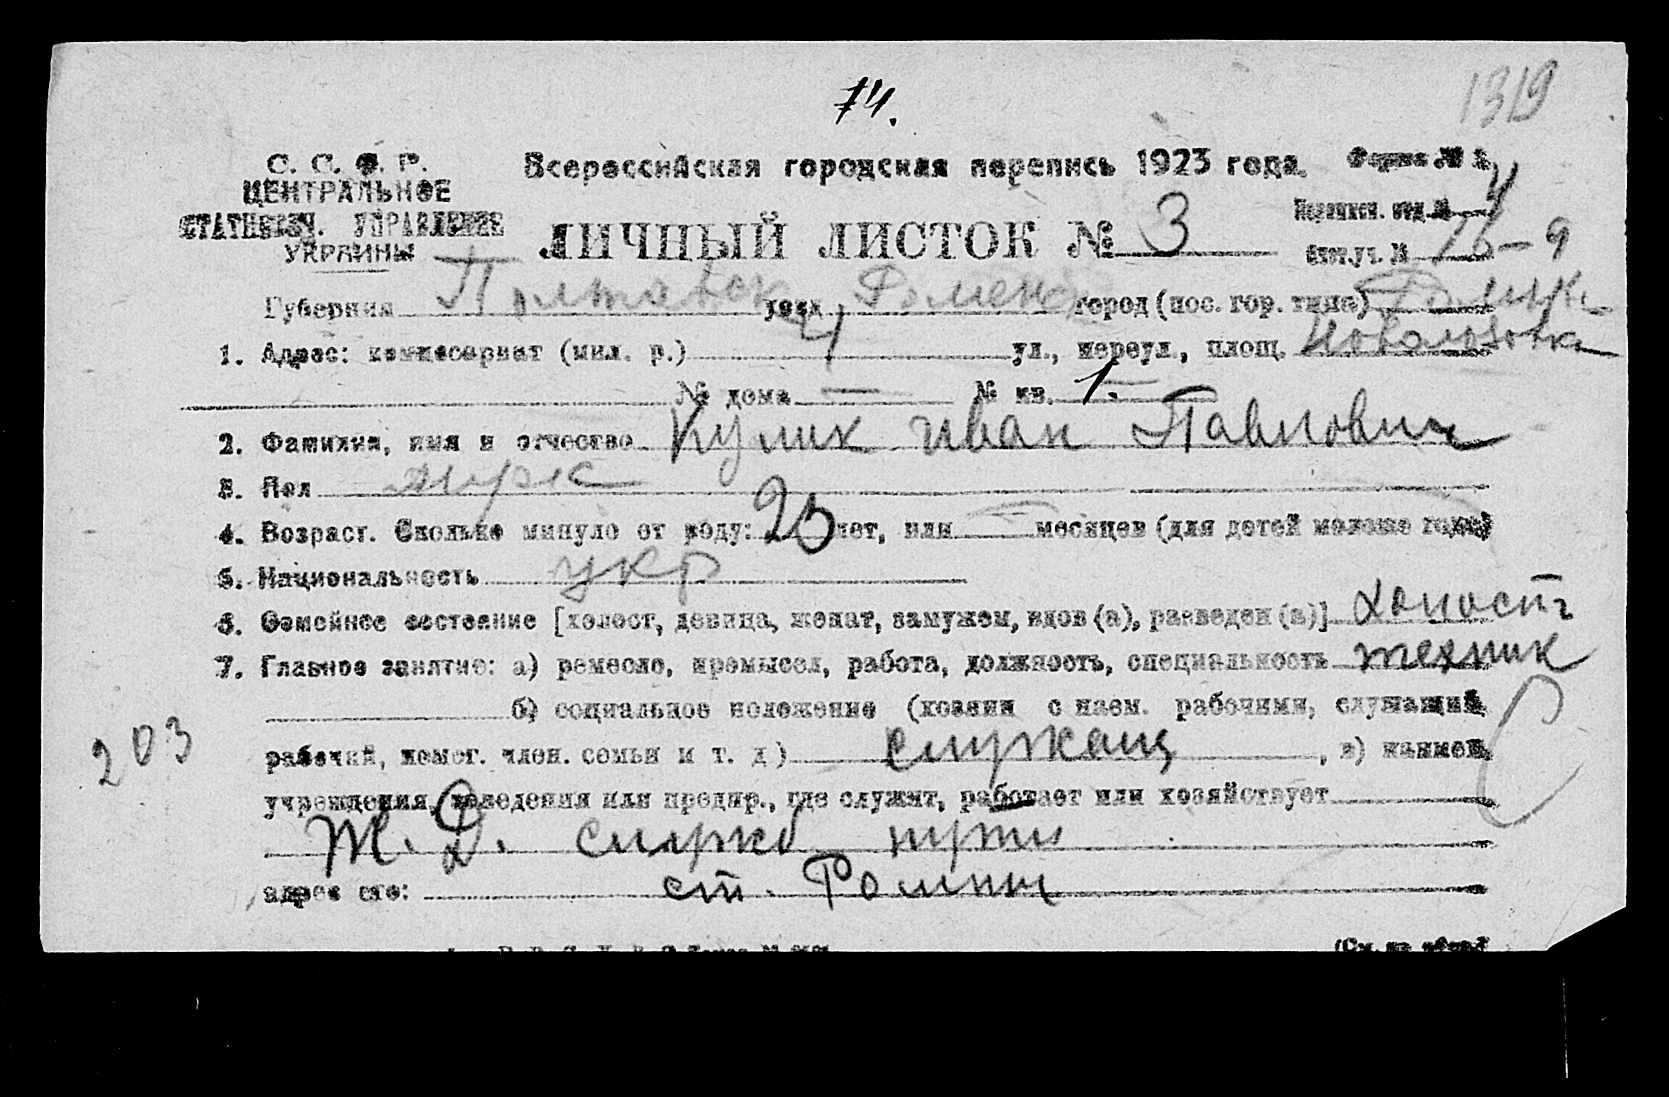 74.
1319
С. С. С. Р.
ЦЕНТРАЛЬНОЕ
СТАТИСТИЧ. УПРАВЛЕНИЕ
УКРАИНЫ
Всероссийская городская перепись 1923 года.
Форма № 2
ЛИЧНЫЙ ЛИСТОК № 3
Переписн. отд. № 4
Счет.уч. № 26-9
Губерния Полтавск уезд Роменс город (пос. гор. типа) Ромны
1. Адрес: комиссариат (мил. р.) 4 ул., переул., площ.
№ дома — № кв. 1.
2. Фамилия, имя и отчество Кулик Иван Павлович
3. Пол мужс
4. Возраст. Сколько минуло от роду: 23 лет, или — месяцев (для детей моложе года)
5. Национальность укр
6. Семейное состояние [холост, девица, женат, замужем, вдов (а), разведен (а)] холост
7. Главное занятие: а) ремесло, промысел, работа, должность, специальность техник
б) социальное положение (хозяин с наем. рабочими, служащий,
203
рабочий, помог. член. семьи и т. д.) служащ, в) наимен.
учреждения, заведения или предпр., где служит, работает или хозяйствует
Ж. Д. служб пути
адрес его: ст. Ромны
(См. на обор.)